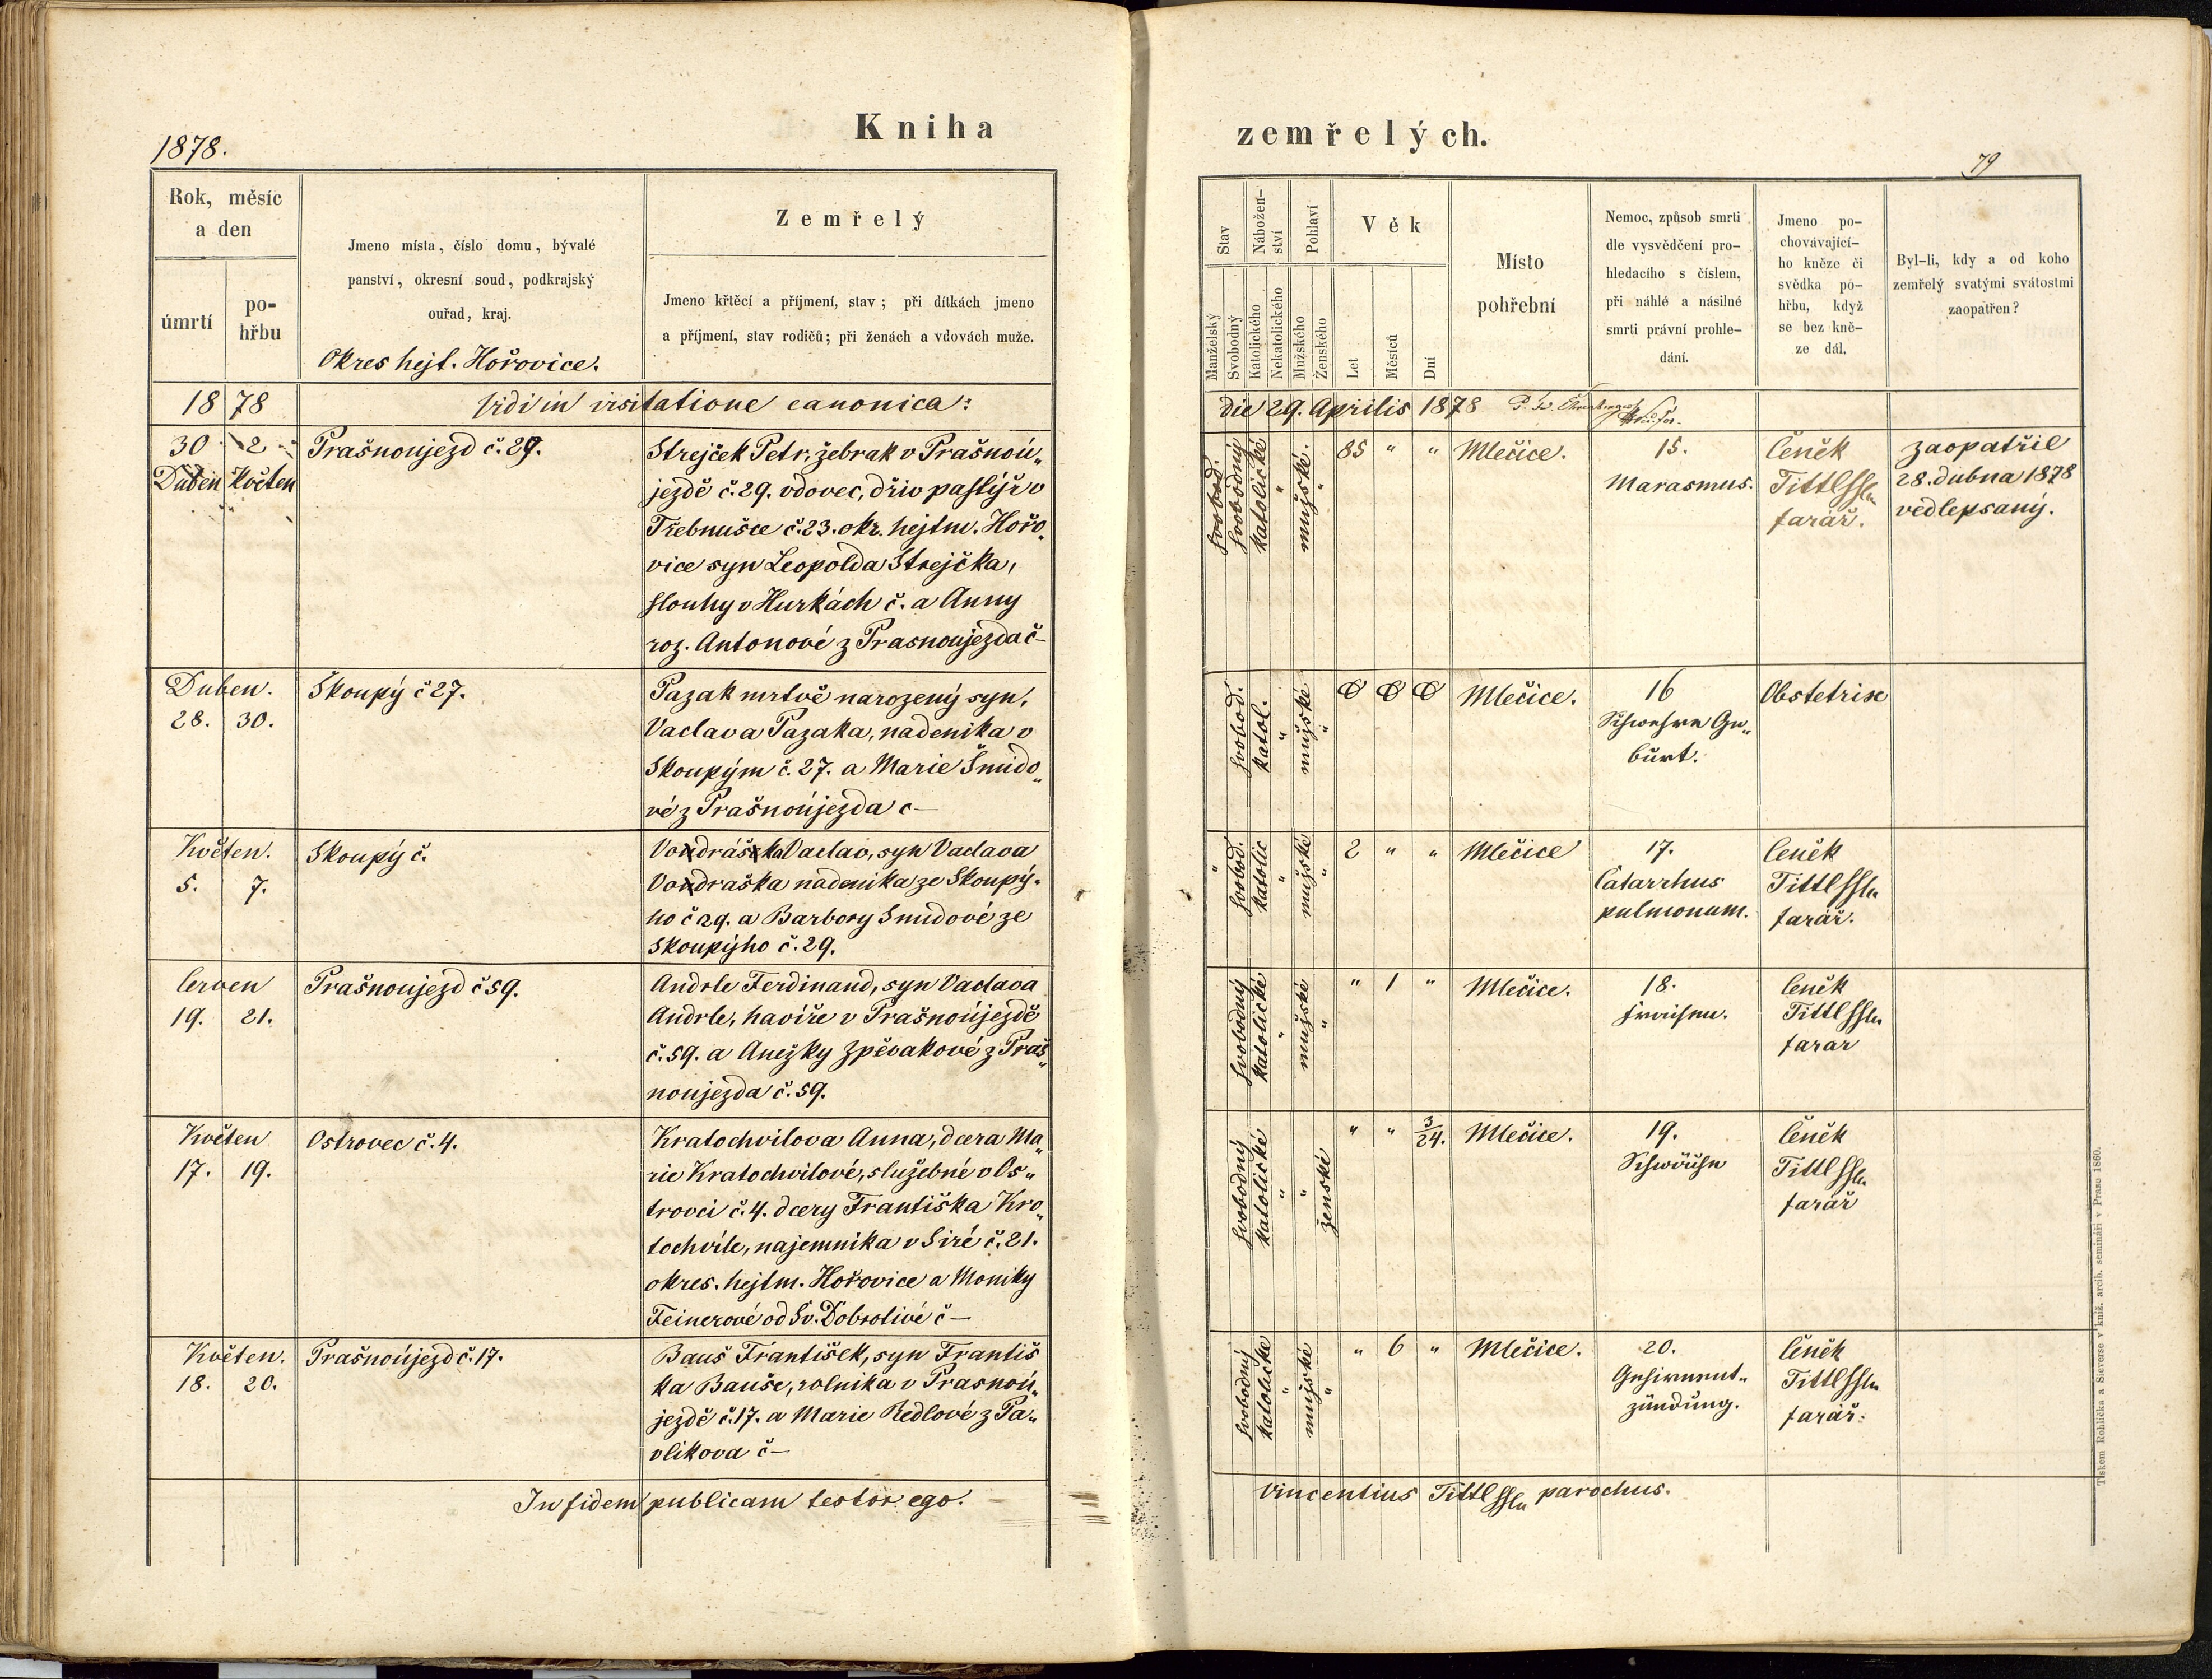 1878.
Kniha
Rok, měsíc
a den
úmrtí
po-
hřbu
Jmeno místa, číslo domu, bývalé
panství, okresní soud, podkrajský
ouřad, kraj.
Okres hejt. Hořovice.
Zemřelý
Jmeno křtěcí a příjmení, stav; při dítkách jmeno
a příjmení, stav rodičů; při ženách a vdovách muže.
1878
Vidi in visitatione canonica:
30 2
Duben Květen
Prašnoujezd č. 29.
Strejček Petr, žebrak v Prašnoú„
jezdě č. 29. vdovec, dřiv pastýř v
Třebnušce č. 23. okr. hejtm. Hořo„
vice syn Leopolda Strejčka,
slouhy v Hurkách č. a Anny
roz. Antonové z Prasnoujezda č –
Duben.
28. 30.
Skoupý č 27.
Pazak mrtvě narozený syn,
Vaclava Pazaka, nadenika v
Skoupým č. 27. a Marie Šmido„
vé z Prašnoújezda c –
Květen.
5. 7.
Skoupý č.
Vondráška Vaclav, syn Vaclava
Vondraška nadenika ze Skoupý-
ho č 29. a Barbory Smidové ze
Skoupýho č. 29.
Červen
19. 21.
Prašnoujezd č 59.
Andrle Ferdinand, syn Vaclava
Andrle, havíře v Prašnoújezdě
č. 59. a Anežky Zpěvakové z Praš„
noujezda č. 59.
Květen
17. 19.
Ostrovec č. 4.
Kratochvilova Anna, dcera Ma„
rie Kratochvilové, služebné v Os„
trovci č. 4. dcery Františka Kra„
tochvíle, najemnika v Siré č. 21.
okres. hejtm. Hořovice a Moniky
Feinerové od Sv. Dobrotivé č –
Květen.
18. 20.
Prašnoújezd č. 17.
Bauš František, syn Františ
ka Bauše, rolnika v Prasnoú„
jezdě č. 17. a Marie Redlové z Pa„
vlikova č –
In fidem publicam testor ego.
zemřelých.
79
Stav
Nábožen-
ství
Pohlaví
Věk
Manželský
Svobodný
Katolického
Nekatolického
Mužského
Ženského
Let
Měsíců
Dní
Místo
pohřební
Nemoc, způsob smrti
dle vysvědčení pro-
hledacího s číslem,
při náhlé a násilné
smrti právní prohle-
dání.
Jmeno po-
chovávající-
ho kněze či
svědka po-
hřbu, když
se bez kně-
ze dál.
Byl-li, kdy a od koho
zemřelý svatými svátostmi
zaopatřen?
die 29. Aprilis 1878
svobod.
svobodný
katolické
„
mužské.
„
85 „ „
Mlečice.
15.
Marasmus.
Čeněk
Tittl
farář.
zaopatřil
28. dubna 1878
vedlepsaný.
svobod.
katol.
„
mužské
„
0 0 0
Mlečice.
16
Schwehre Ge„
burt.
Obstetrise
„
svobod.
katolic
„
mužské
„
2 „ „
Mlečice
17.
Catarrhus
pulmonum.
Čeněk
Tittl
farář.
svobodný
katolické
„
mužské
„
„ 1 „
Mlečice.
18.
Fraisen.
Čeněk
Tittl
farar
svobodný
katolické
„
„
ženské
„ „ 3/24.
Mlečice.
19.
Schwäche
Čeněk
Tittl
farář
svobodný
katolické
„
mužské
„
„ 6 „
Mlečice.
20.
Gehirnent„
zündung.
Čeněk
Tittl
farář:
Vincentius Tittl parochus.
Tiskem Rohlíčka a Sieverse v kníž. arcib. semináři v Praze 1860.